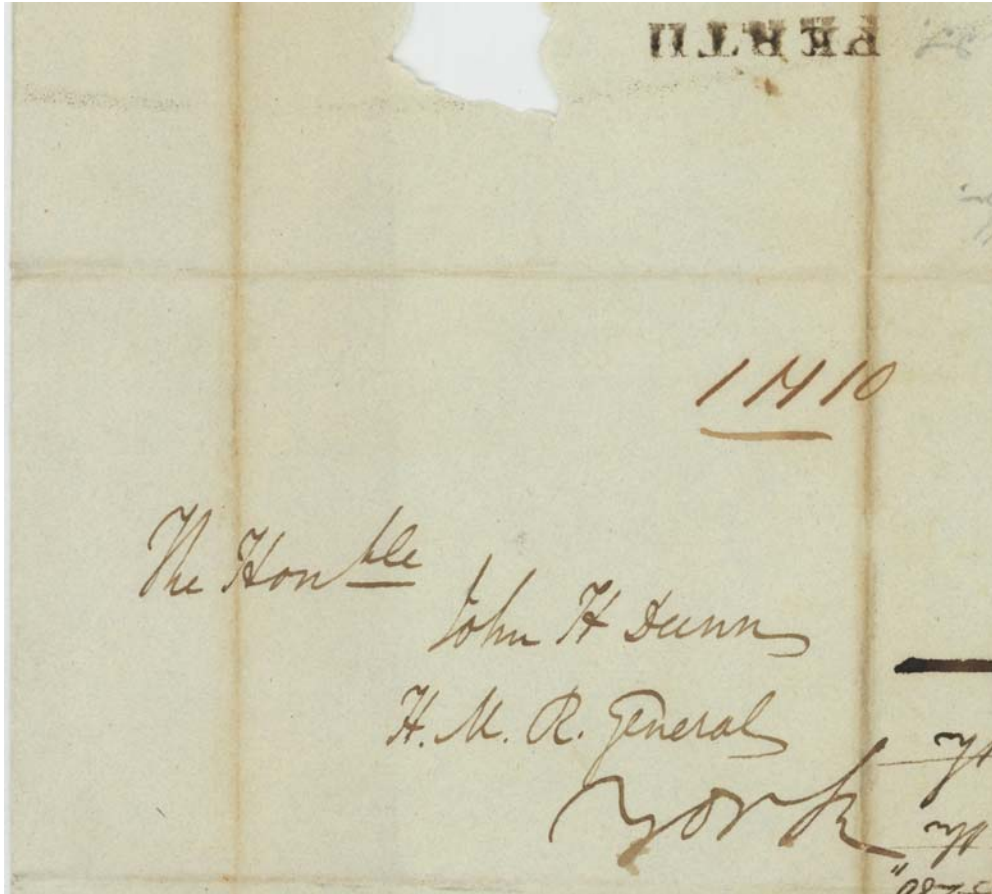 PERTH
1 N 10
The Hon<sup>ble</sup>
John H Dunn
H. M. R. General
York